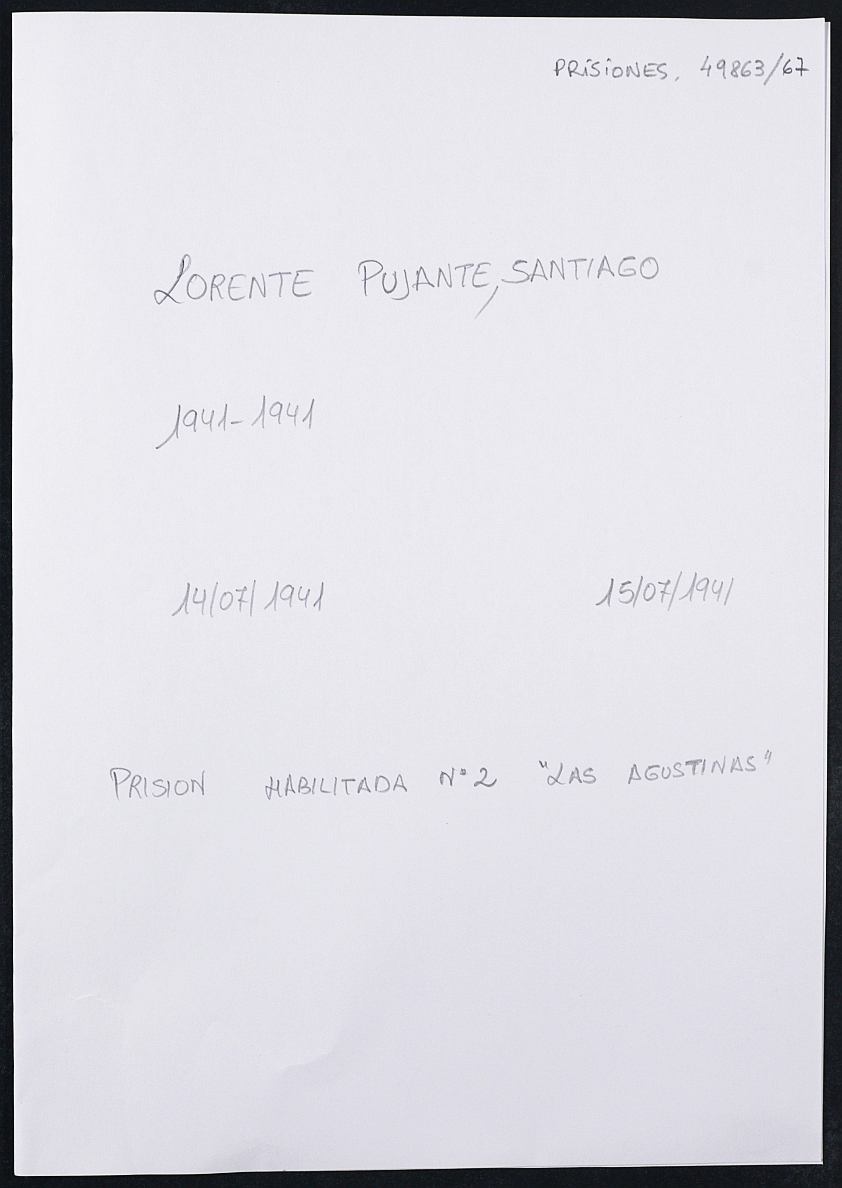 PRISIONES, 49863/67
LORENTE PUJANTE, SANTIAGO
1941-1941
14/07/1941 15/07/1941
PRISION HABILITADA Nº 2 "LAS AGUSTINAS"